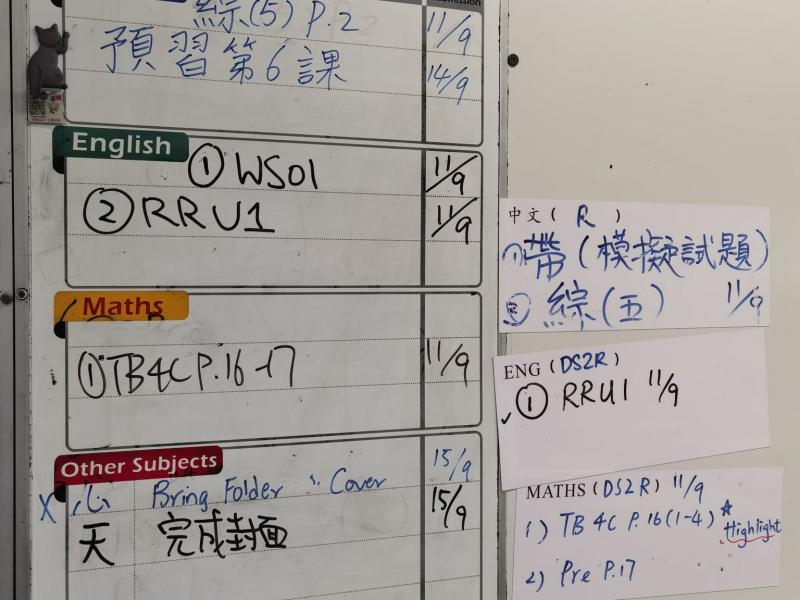 綜(5) P.2 11/9
預習第6課 14/9
English
① WS01 11/9
② RRU1 11/9
Maths
① TB4C P.16-17 11/9
Other Subjects
X 心 Bring Folder Cover 15/9
天 完成封面 15/9
中文 ( R )
① 帶 (模擬試題)
② 綜(五) 11/9
ENG (DS2R)
✓ ① RRU1 11/9
MATHS (DS2R) 11/9
1) TB 4C P.16(1-4) ☆ Highlight
2) Pre P.17